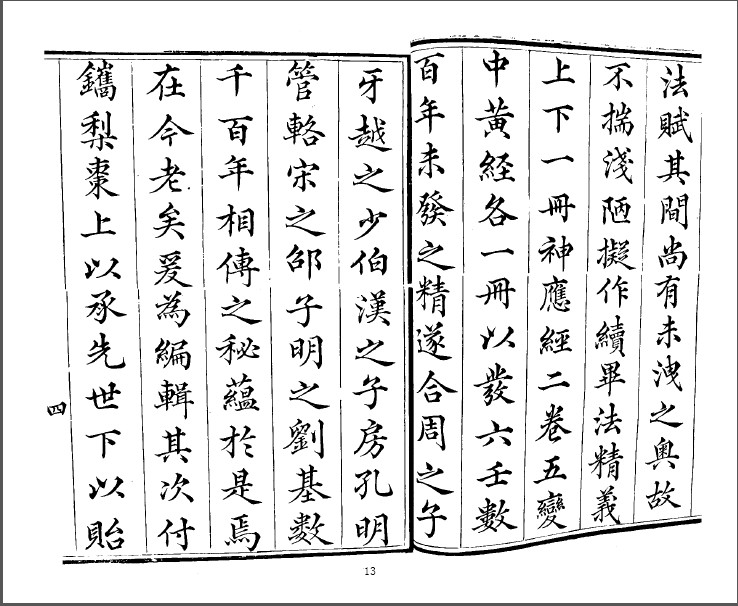 法賦其間尚有未洩之奧故
不揣淺陋擬作續畢法精義
上下一冊神應經二卷五變
中黃經各一冊以發六壬數
百年未發之精遂合周之子
牙越之少伯漢之子房孔明
管輅宋之邵子明之劉基數
千百年相傳之秘蘊於是焉
在今老矣爰為編輯其次付
鐫梨棗上以承先世下以貽
四
13